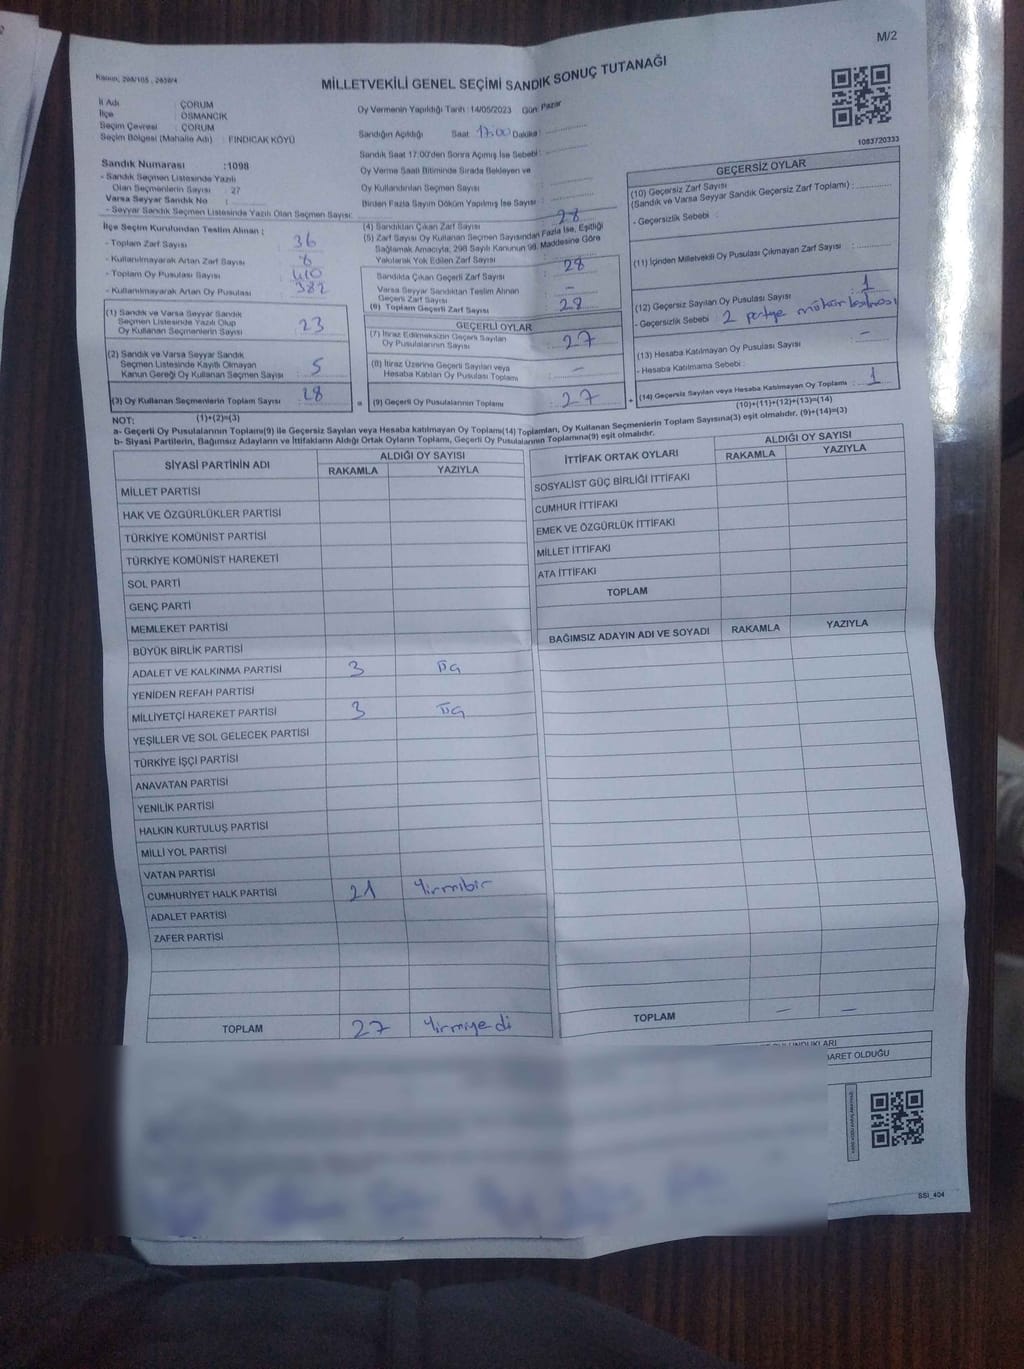 M/2
Kanun, 298/105 , 2839/4
MİLLETVEKİLİ GENEL SEÇİMİ SANDIK SONUÇ TUTANAĞI
İl Adı : ÇORUM
İlçe : OSMANCIK
Seçim Çevresi : ÇORUM
Seçim Bölgesi (Mahalle Adı) : FINDICAK KÖYÜ
Sandık Numarası :1098
- Sandık Seçmen Listesinde Yazılı
Olan Seçmenlerin Sayısı : 27
Varsa Seyyar Sandık No :
- Seyyar Sandık Seçmen Listesinde Yazılı Olan Seçmen Sayısı:
İlçe Seçim Kurulundan Teslim Alınan ;
- Toplam Zarf Sayısı : 36
- Kullanılmayarak Artan Zarf Sayısı :
- Toplam Oy Pusulası Sayısı : 410
- Kullanılmayarak Artan Oy Pusulası : 382
(1) Sandık ve Varsa Seyyar Sandık
Seçmen Listesinde Yazılı Olup
Oy Kullanan Seçmenlerin Sayısı : 23
(2) Sandık ve Varsa Seyyar Sandık
Seçmen Listesinde Kayıtlı Olmayan
Kanun Gereği Oy Kullanan Seçmen Sayısı : 5
(3) Oy Kullanan Seçmenlerin Toplam Sayısı : 28
(1)+(2)=(3)
Oy Vermenin Yapıldığı Tarih :14/05/2023 Gün: Pazar
Sandığın Açıldığı Saat 17:00 Dakika:
Sandık Saat 17:00'den Sonra Açılmış İse Sebebi:
Oy Verme Saati Bitiminde Sırada Bekleyen ve
Oy Kullandırılan Seçmen Sayısı :
Birden Fazla Sayım Döküm Yapılmış İse Sayısı :
(4) Sandıktan Çıkan Zarf Sayısı : 28
(5) Zarf Sayısı Oy Kullanan Seçmen Sayısından Fazla İse, Eşitliği
Sağlamak Amacıyla, 298 Sayılı Kanunun 98. Maddesine Göre
Yakılarak Yok Edilen Zarf Sayısı :
Sandıkta Çıkan Geçerli Zarf Sayısı : 28
Varsa Seyyar Sandıktan Teslim Alınan
Geçerli Zarf Sayısı : -
(6) Toplam Geçerli Zarf Sayısı : 28
GEÇERLİ OYLAR
(7) İtiraz Edilmeksizin Geçerli Sayılan
Oy Pusulalarının Sayısı : 27
(8) İtiraz Üzerine Geçerli Sayılan veya
Hesaba Katılan Oy Pusulası Toplamı : -
= (9) Geçerli Oy Pusulalarının Toplamı : 27
1083720333
GEÇERSİZ OYLAR
(10) Geçersiz Zarf Sayısı
(Sandık ve Varsa Seyyar Sandık Geçersiz Zarf Toplamı) :
- Geçersizlik Sebebi :
(11) İçinden Milletvekili Oy Pusulası Çıkmayan Zarf Sayısı :
(12) Geçersiz Sayılan Oy Pusulası Sayısı : 1
- Geçersizlik Sebebi : 2 partiye mühür basılması
(13) Hesaba Katılmayan Oy Pusulası Sayısı : -
- Hesaba Katılmama Sebebi :
+ (14) Geçersiz Sayılan veya Hesaba Katılmayan Oy Toplamı : 1
(10)+(11)+(12)+(13)=(14)
NOT:
a- Geçerli Oy Pusulalarının Toplamı(9) ile Geçersiz Sayılan veya Hesaba katılmayan Oy Toplamı(14) Toplamları, Oy Kullanan Seçmenlerin Toplam Sayısına(3) eşit olmalıdır. (9)+(14)=(3)
b- Siyasi Partilerin, Bağımsız Adayların ve İttifakların Aldığı Ortak Oyların Toplamı, Geçerli Oy Pusulalarının Toplamına(9) eşit olmalıdır.
SİYASİ PARTİNİN ADI ALDIĞI OY SAYISI
RAKAMLA YAZIYLA
MİLLET PARTİSİ
HAK VE ÖZGÜRLÜKLER PARTİSİ
TÜRKİYE KOMÜNİST PARTİSİ
TÜRKİYE KOMÜNİST HAREKETİ
SOL PARTİ
GENÇ PARTİ
MEMLEKET PARTİSİ
BÜYÜK BİRLİK PARTİSİ
ADALET VE KALKINMA PARTİSİ 3 üç
YENİDEN REFAH PARTİSİ
MİLLİYETÇİ HAREKET PARTİSİ 3 üç
YEŞİLLER VE SOL GELECEK PARTİSİ
TÜRKİYE İŞÇİ PARTİSİ
ANAVATAN PARTİSİ
YENİLİK PARTİSİ
HALKIN KURTULUŞ PARTİSİ
MİLLİ YOL PARTİSİ
VATAN PARTİSİ
CUMHURİYET HALK PARTİSİ 21 Yirmibir
ADALET PARTİSİ
ZAFER PARTİSİ
TOPLAM 27 Yirmiyedi
İTTİFAK ORTAK OYLARI ALDIĞI OY SAYISI
RAKAMLA YAZIYLA
SOSYALİST GÜÇ BİRLİĞİ İTTİFAKI
CUMHUR İTTİFAKI
EMEK VE ÖZGÜRLÜK İTTİFAKI
MİLLET İTTİFAKI
ATA İTTİFAKI
TOPLAM
BAĞIMSIZ ADAYIN ADI VE SOYADI RAKAMLA YAZIYLA
TOPLAM - -
ARET OLDUĞU
SSİ_404